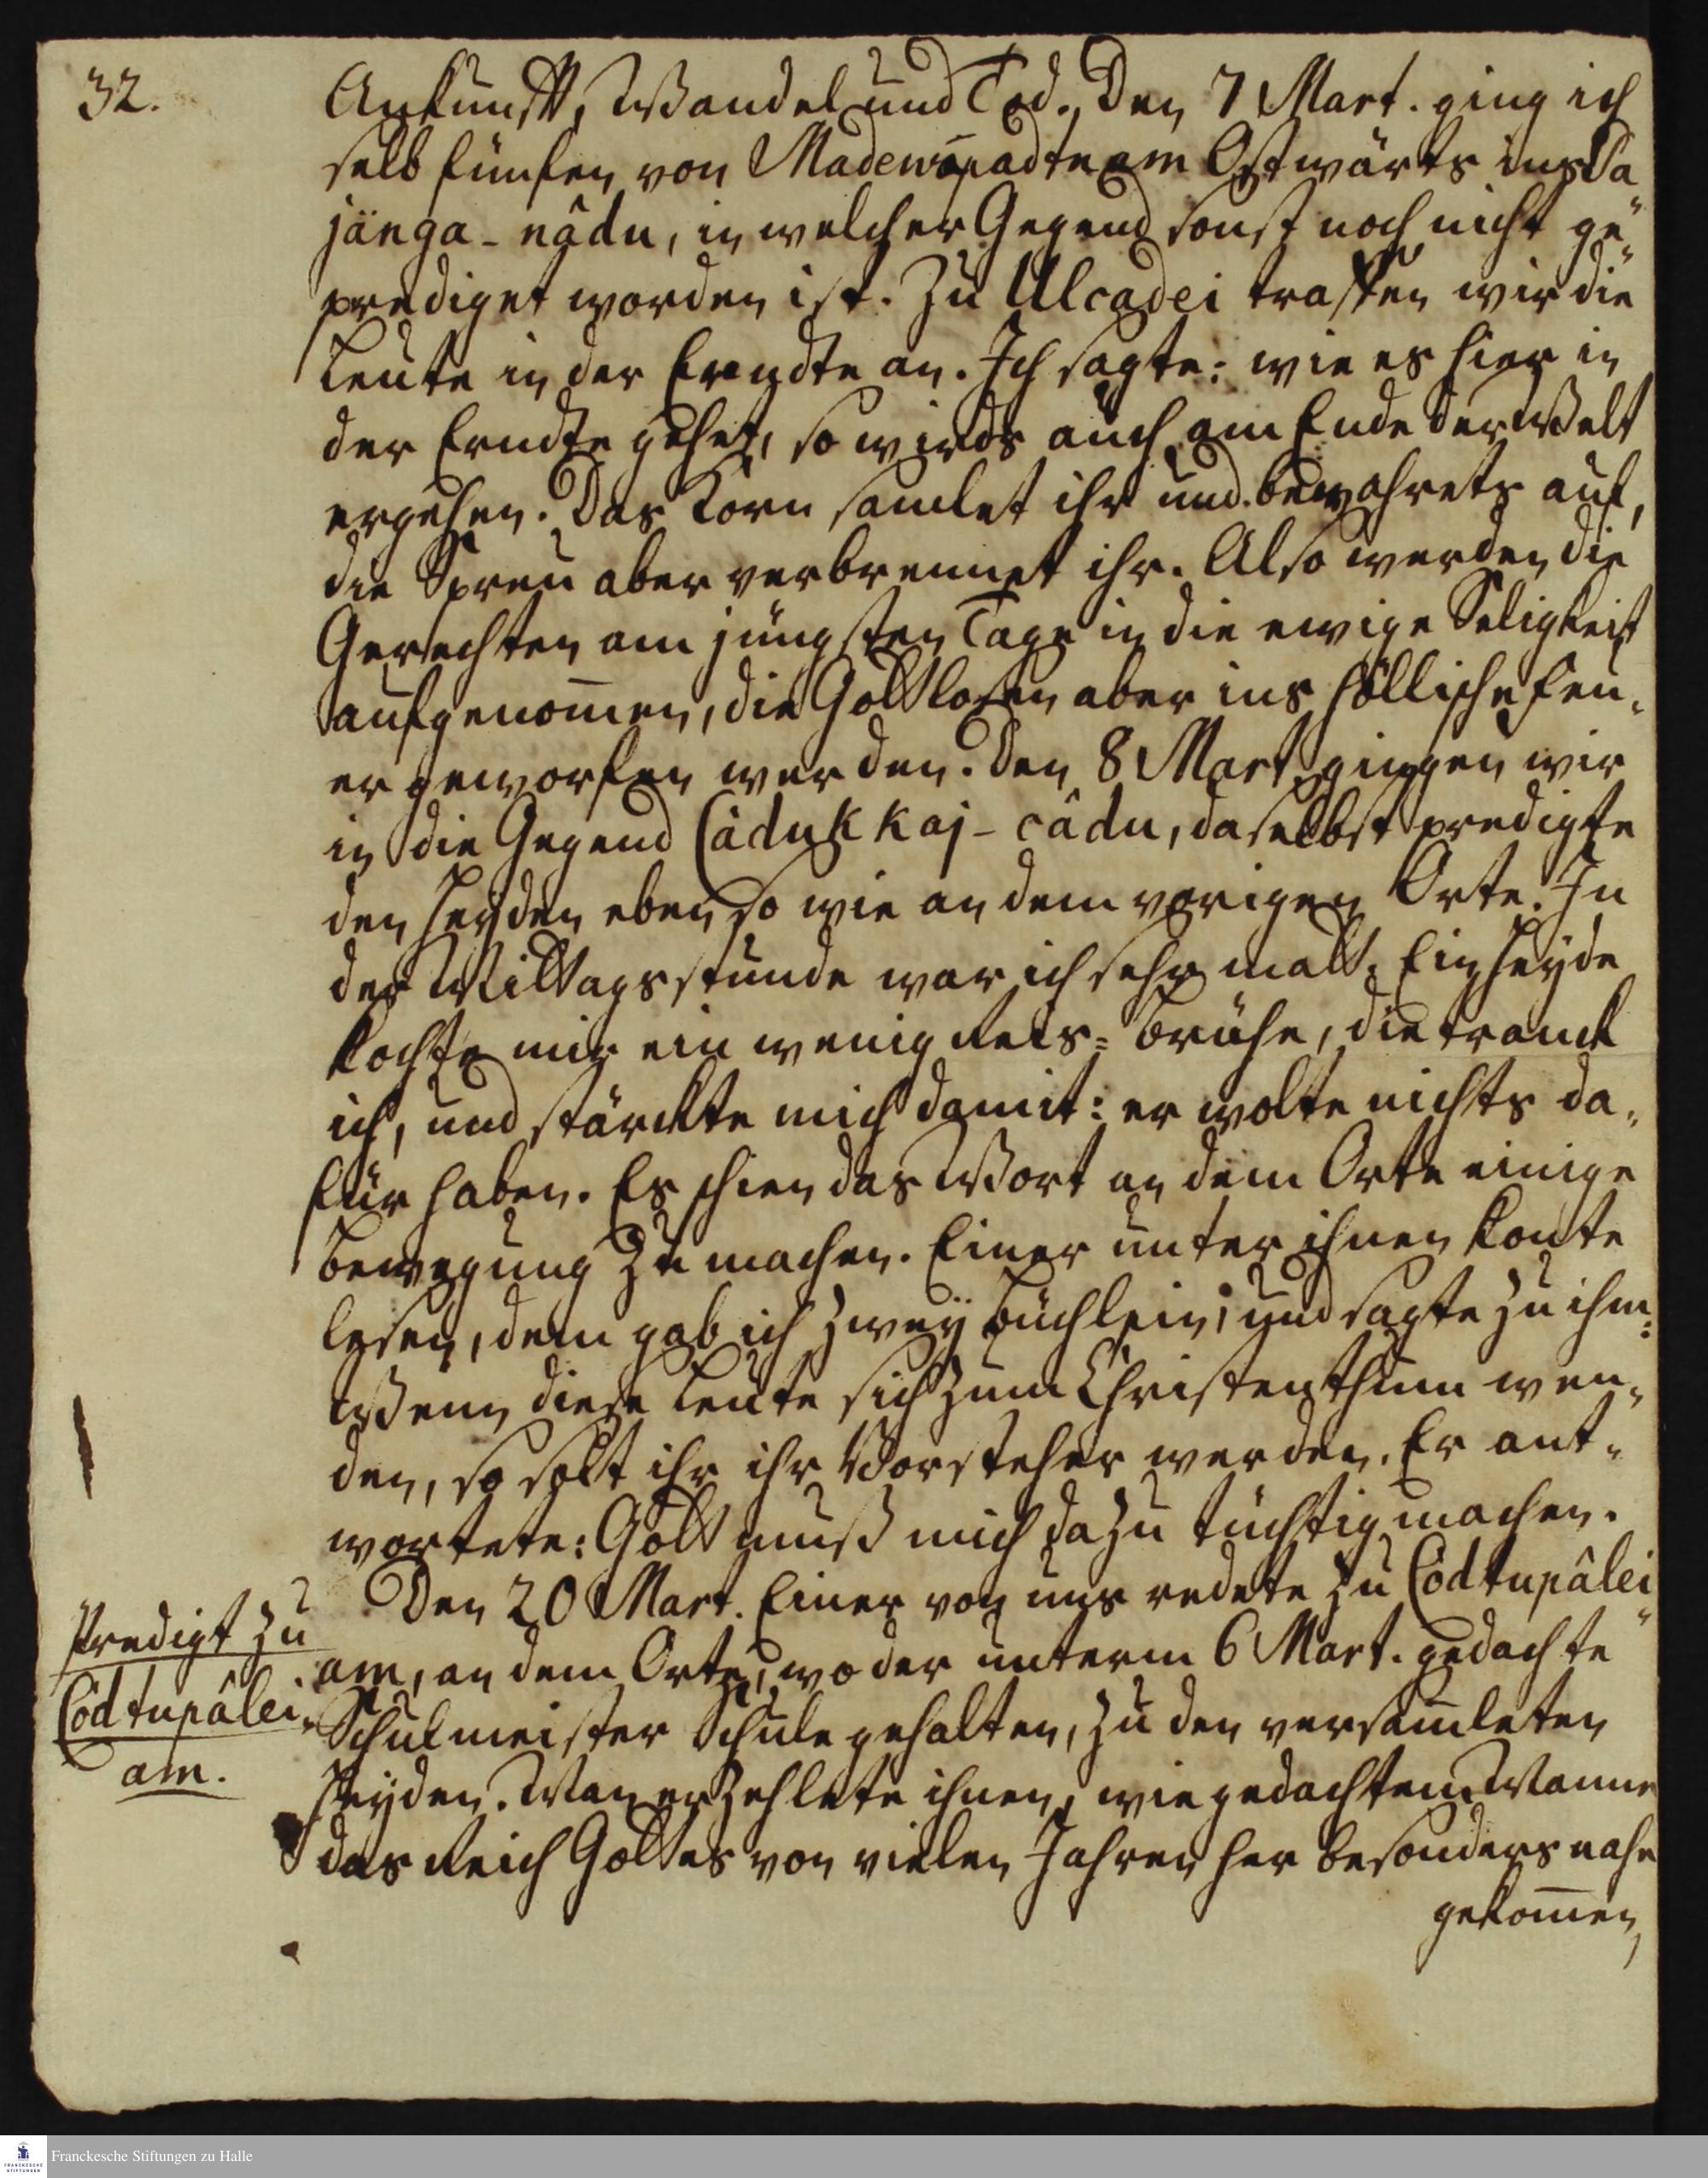 32.
Ankunfft, Wandel und Tod. Den 7 Mart. ging ich
selb fünfen von Madewipadtnam Ostwärts ins Sa
jänga-nâdu, in welcher Gegend sonst noch nicht ge„
prediget worden ist. Zu Ulcadei traffen wir die
Leute in der Erndte an. Ich sagte: wie es hier in
der Erndte gehet, so wirds auch am Ende der Welt
ergehen. Das Korn samlet ihr und bewahrets auf,
die Spreu aber verbrennet ihr. Also werden die
Gerechten am jüngsten Tage in die ewige Seligkeit
aufgenom̄en, die Gottlosen aber ins höllische Feu„
er geworfen werden. Den 8 Mart. gingen wir
in die Gegend Cádukkaj-câdu, daselbst predigte
den Heyden eben so wie an dem vorigen Orte. In
der Mittagsstunde war ich sehr matt. Ein Heyde
kochte mir ein wenig Reis=Brühe, die tranck
ich, und stärckte mich damit: er wolte nichts da„
für haben. Es schien das Wort an dem Orte einige
Bewegung zu machen. Einer unter ihnen konte
lesen, dem gab ich zwey Büchlein, und sagte zu ihm:
Wenn diese Leute sich zum Christenthum wen„
den, so solt ihr ihr Vorsteher werden. Er ant„
wortete: Gott muß mich dazu tüchtig machen.
Den 20 Mart. Einer von uns redete zu Códtupâlei„
am, an dem Orte, wo der unterm 6 Mart. gedachte
Schulmeister Schule gehalten, zu den versam̄leten
Heyden. Man erzehlete ihnen, wie gedachtem Manne
das Reich Gottes von vielen Jahren her besonders nahe
gekom̄en
Predigt zu
Códtupâlei„
am.
Franckesche Stiftungen zu Halle